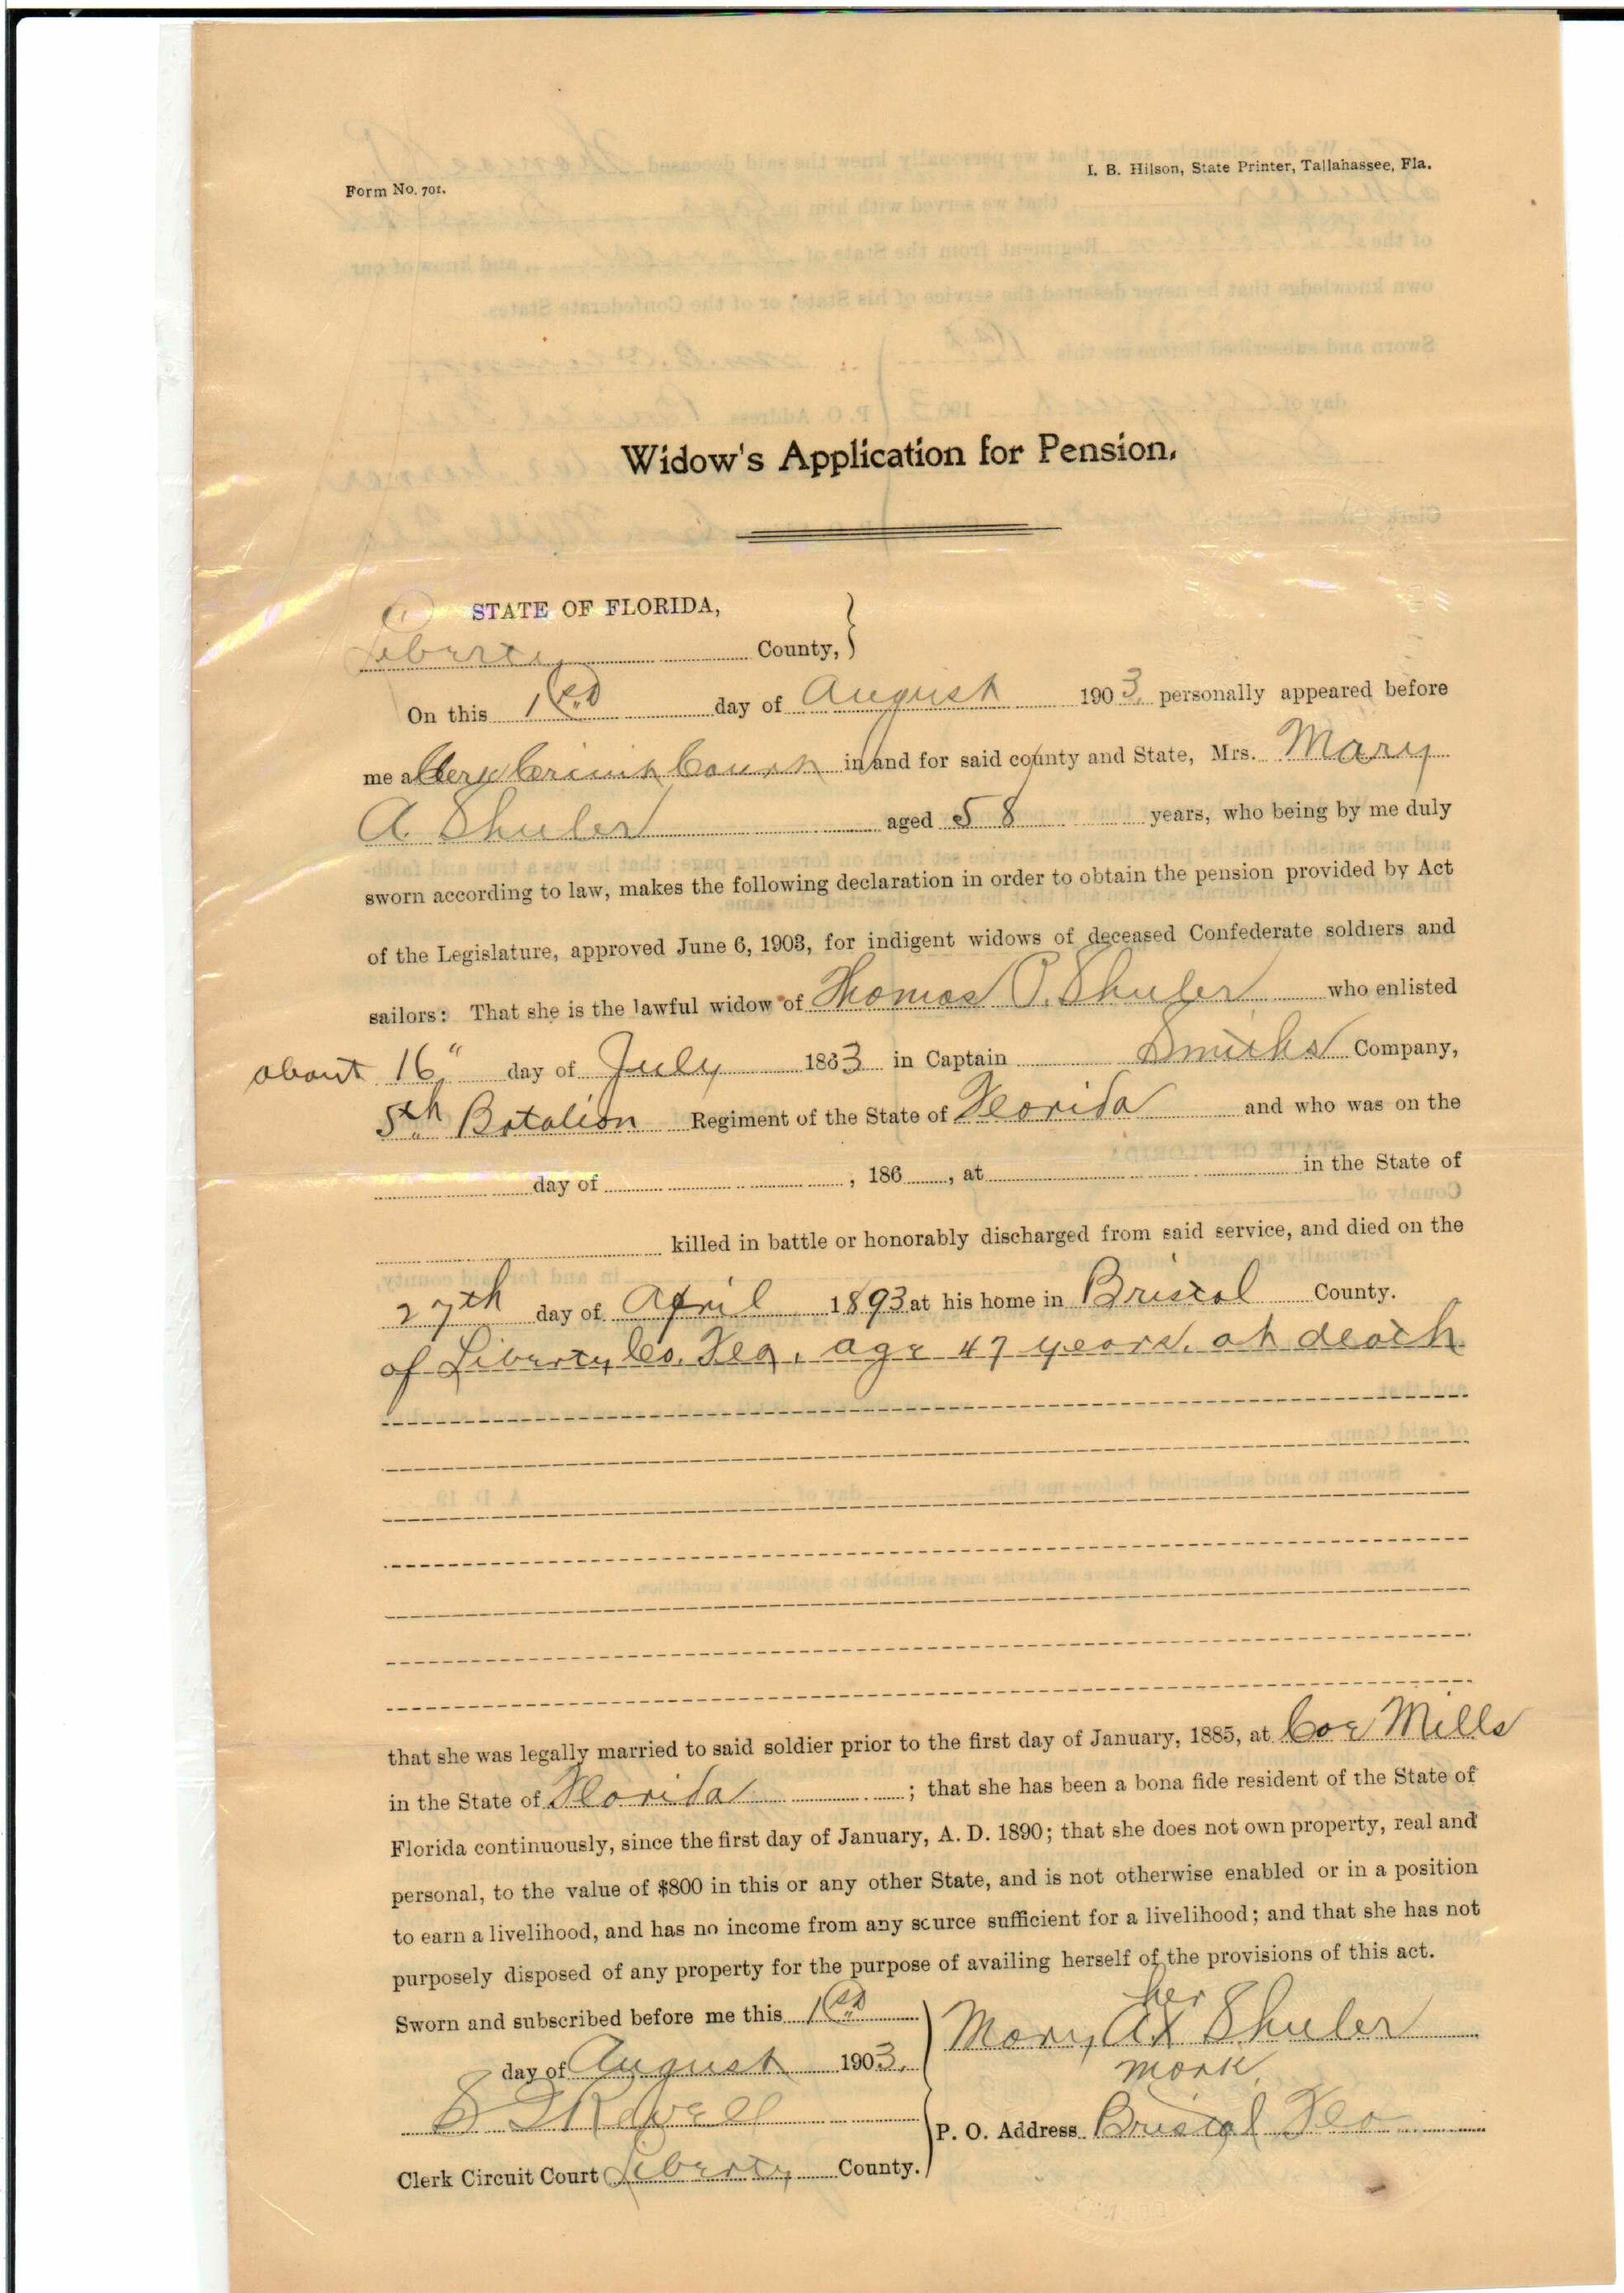 Form No. 701.
I. B. Hilson, State Printer, Tallahassee, Fla.
Widow's Application for Pension.
STATE OF FLORIDA,
Liberty County,
On this 1st day of August 1903, personally appeared before
me a Clerk Circuit Court in and for said county and State, Mrs. Mary
A. Shuler aged 58 years, who being by me duly
sworn according to law, makes the following declaration in order to obtain the pension provided by Act
of the Legislature, approved June 6, 1903, for indigent widows of deceased Confederate soldiers and
sailors: That she is the lawful widow of Thomas P. Shuler who enlisted
about 16" day of July 1863 in Captain Smiths Company,
5th Batalion Regiment of the State of Florida and who was on the
day of , 186 , at in the State of
killed in battle or honorably discharged from said service, and died on the
27th day of April 1893 at his home in Bristol County.
of Liberty Co. Fla, age 47 years. at death
that she was legally married to said soldier prior to the first day of January, 1885, at Coe Mills
in the State of Florida ; that she has been a bona fide resident of the State of
Florida continuously, since the first day of January, A. D. 1890; that she does not own property, real and
personal, to the value of $800 in this or any other State, and is not otherwise enabled or in a position
to earn a livelihood, and has no income from any scurce sufficient for a livelihood; and that she has not
purposely disposed of any property for the purpose of availing herself of the provisions of this act.
Sworn and subscribed before me this 1st
day of August 1903.
her
Mary A X Shuler
mark
P. O. Address Bristol Fla
Clerk Circuit Court Liberty County.